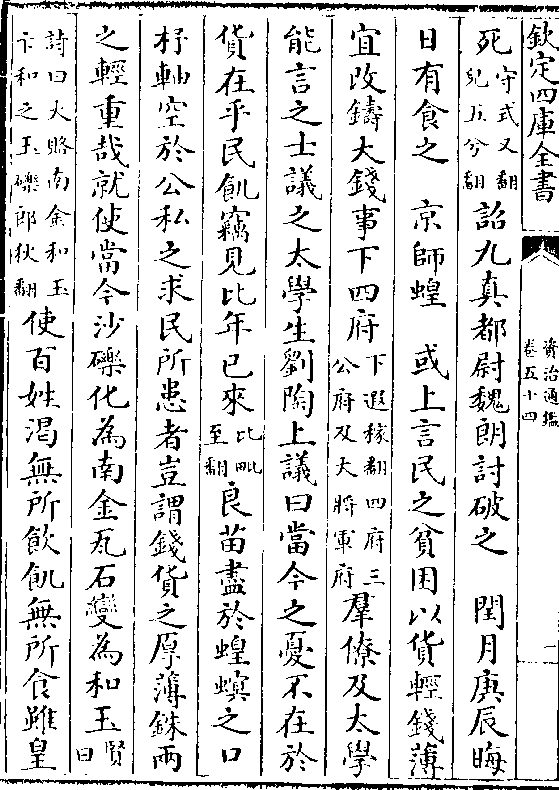 欽定四庫全書
資治通鑑
卷五十四
死守式又翻兒五兮翻詔九真都尉魏朗討破之　閏月庚辰晦
日有食之　京師蝗　或上言民之貧困以貨輕錢薄
宜改鑄大錢事下四府下遐稼翻四府三公府及大將軍府羣僚及太學
能言之士議之太學生劉陶上議曰當今之憂不在於
貨在乎民飢竊見比年已來比毗至翻良苗盡於蝗螟之口
杼軸空於公私之求民所患者豈謂錢貨之厚薄銖兩
之輕重哉就使當今沙礫化為南金瓦石變為和玉賢曰
詩曰大賂南金和玉卞和之玉礫郎狄翻使百姓渴無所飲飢無所食雖皇